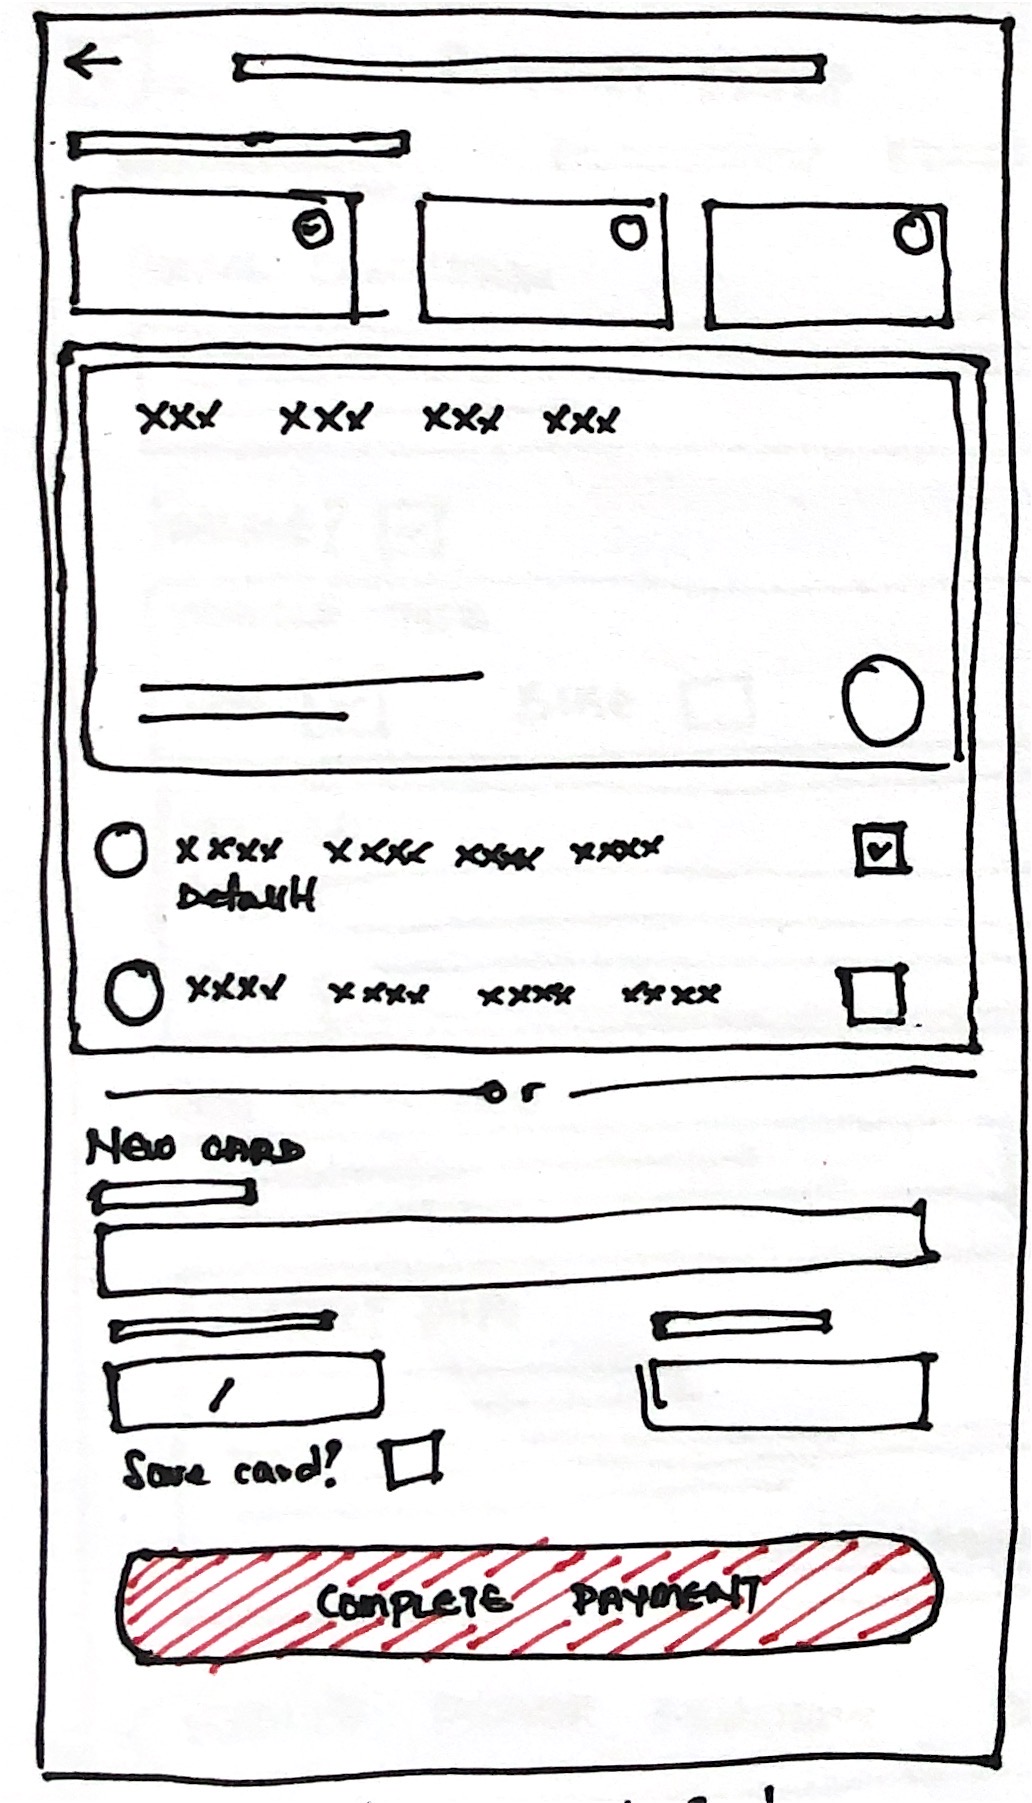 xxx xxx xxx xxx
xxxx xxxx xxxx xxxx
Default
xxxx xxxx xxxx xxxx
or
NEW CARD
/
Save card?
COMPLETE PAYMENT